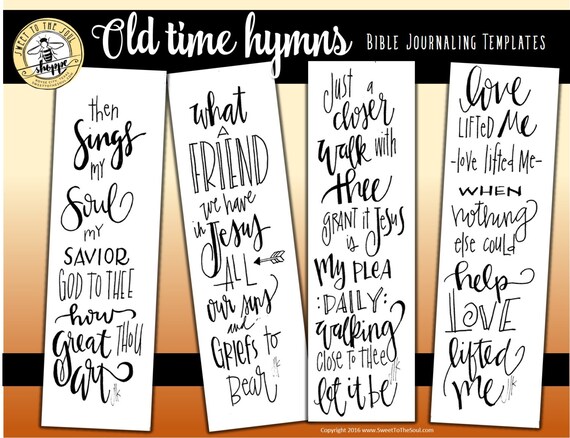 SWEET TO THE SOUL
shoppe
Old time hymns
BIBLE JOURNALING TEMPLATES
then
Sings
MY
Soul
MY
SAVIOR
GOD TO THEE
how
Great THOU
art
what
A
FRIEND
we have
in Jesus
ALL
our sins
and
GRIEFS to
Bear
Just a
closer
walk with
thee
GRANT it Jesus
is
MY PLEA
:DAILY:
walking
CLOSE to THEE
let it be
love
LIFTED ME
-love lifted Me-
WHEN
nothing
else could
help
LOVE
lifted
me
Copyright 2016 www.SweetToTheSoul.com